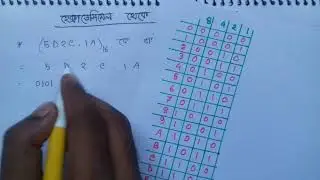 হেক্সাডেসিমেল থেকে
* (5D2C.1A)16 কে
= 5 D 2 C . 1 A
= 0101
8 4 2 1
0 0 0 0 0
1 0 0 0 1
2 0 0 1 0
3 0 0 1 1
4 0 1 0 0
5 0 1 0 1
6 0 1 1 0
7 0 1 1 1
8 1 0 0 0
9 1 0 0 1
A 1 0 1 0
B 1 0 1 1
C 1 1 0 0
D 1 1 0 1